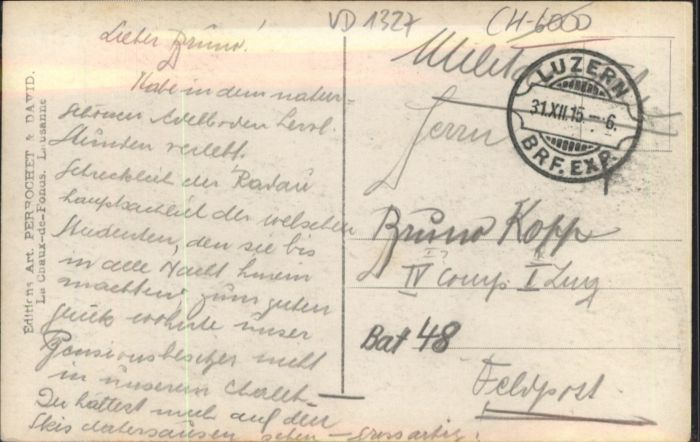 VD 1327
CH-6000
Lieber Bruno!
Habe in dem natur-
schönen Adelboden herrl.
Stunden verlebt.
Schrecklich der Radau
hauptsächlich der welschen
Studenten, den sie bis
in alle Nacht hinein
machten, zum guten
Glück wohnte unser
Pensionsbesitzer nicht
in unserem Chalet.
Du hättest mich auf den
Skis dahersausen sehen – grossartig!
Editions Art. PERROCHET & DAVID.
La Chaux-de-Fonds. Lausanne
LUZERN
31.XII.15.–6.
BRF.EXP.
Herrn
Bruno Kopp
IV Comp I Zug
Bat 48
Feldpost